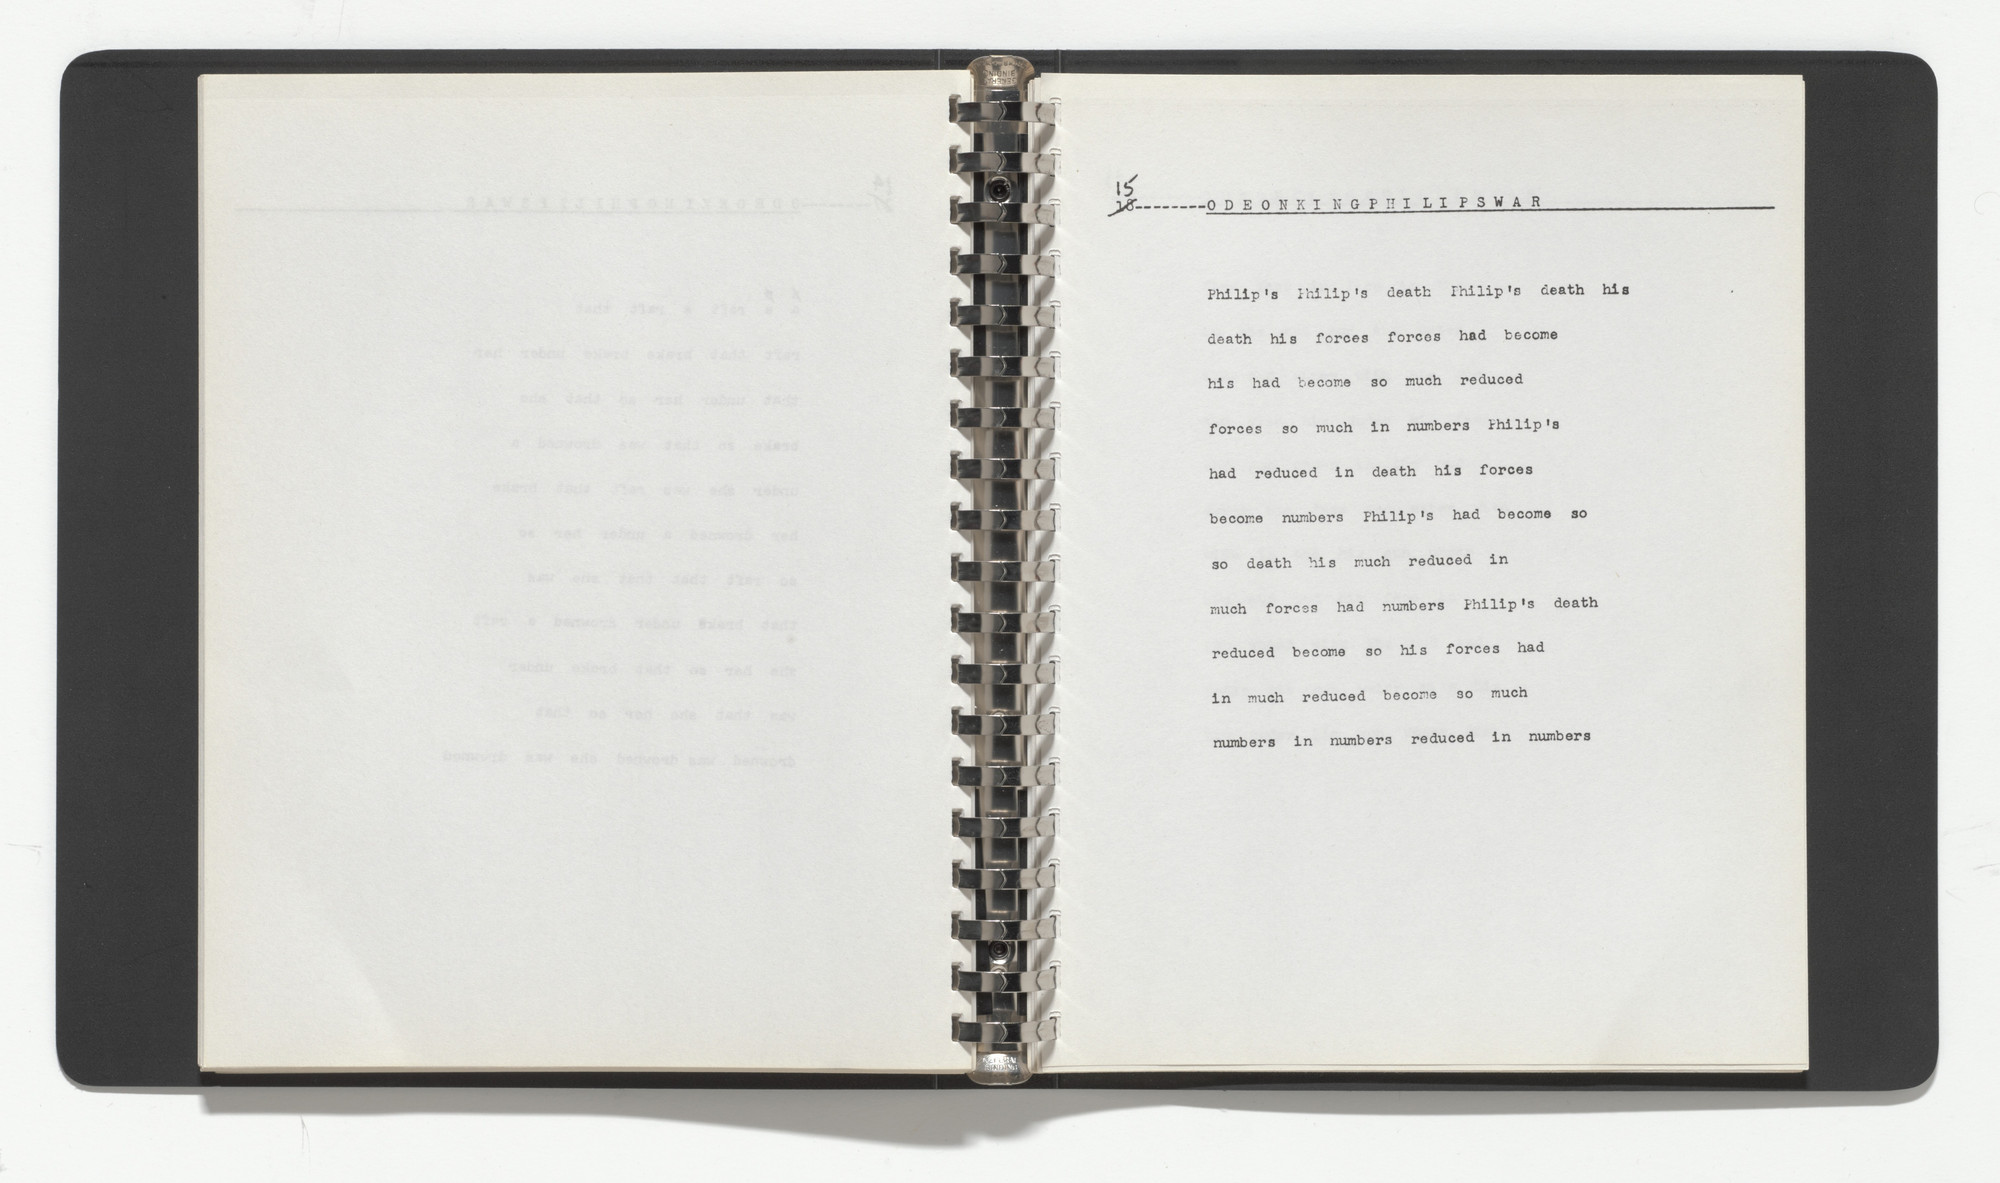 15
18--------ODEONKINGPHILIPSWAR
Philip's Philip's death Philip's death his
death his forces forces had become
his had become so much reduced
forces so much in numbers Philip's
had reduced in death his forces
become numbers Philip's had become so
so death his much reduced in
much forces had numbers Philip's death
reduced become so his forces had
in much reduced become so much
numbers in numbers reduced in numbers